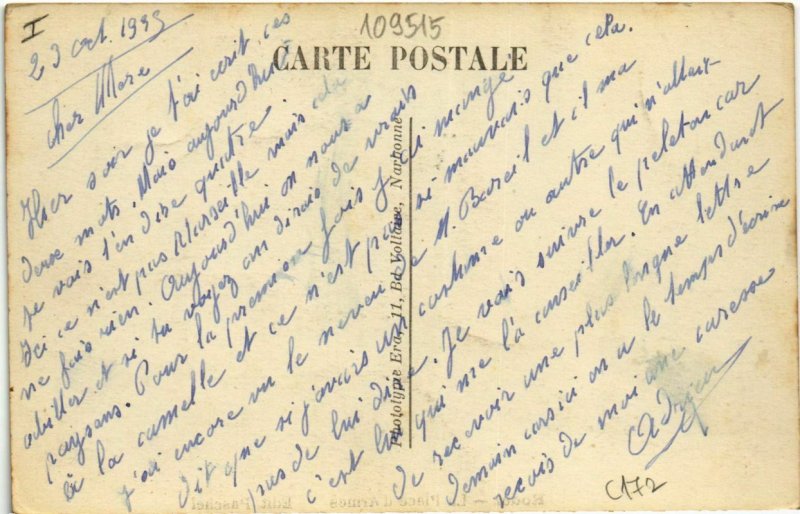 I
109515
CARTE POSTALE
23 oct. 1939
cher Mere
Hier soir je t'ai ecrit ces
deux mots. Mais aujourd'hui
je vais t'en dire quatre.
Ici ce n'est pas Marseille mais cela
ne fais rien. Aujourd'hui on nous a
abiller et si tu voyez on dirais de vrais
paysans. Pour la premiere fois j'ai mangé
à la camelle et ce n'est pas si mauvais que cela.
j'ai encore vu le neveu de M. Bareil et il m'a
dit que si j'avais un costume ou autre qui n'allait
pas de lui dire. Je vais suivre le peleton car
c'est lui qui me l'à conseiller. En attendant
de recevoir une plus longue lettre
demain car ici on a le temps d'écrire
recois de moi une caresse
Adrien
Phototype Era, 11, Bd Voltaire, Narbonne
C172
Place d'Armes
Edit